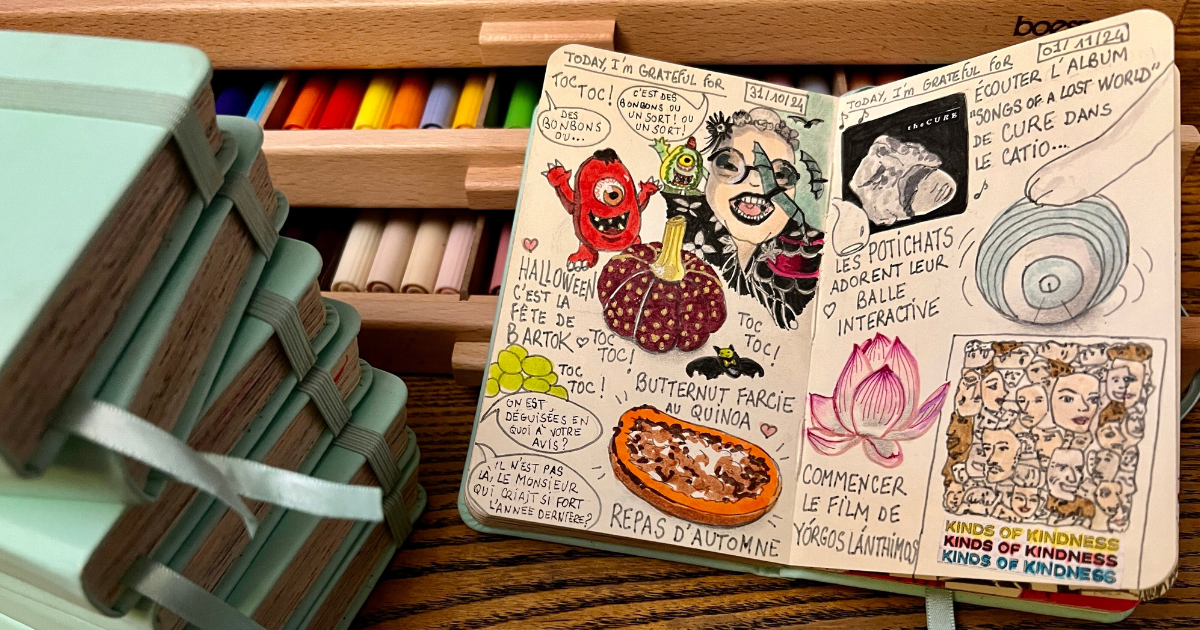 boes
TODAY, I'm GRATEFUL FOR
31/10/24
TOC
TOC!
DES
BONBONS
OU...
C'EST DES
BONBONS OU
UN SORT! OU
UN SORT!
HALLOWEEN
C'EST LA
FÊTE DE
BARTOK
TOC
TOC!
TOC
TOC!
TOC
TOC!
ON EST
DÉGUISÉES EN
QUOI À VOTRE
AVIS?
IL N'EST PAS
LÀ, LE MONSIEUR
QUI CRIAIT SI FORT
L'ANNÉE DERNIÈRE?
BUTTERNUT FARCIE
AU QUINOA
REPAS D'AUTOMNE
TODAY, I'm GRATEFUL FOR
01/11/24
ÉCOUTER L'ALBUM
"SONGS OF A LOST WORLD"
DE CURE DANS
LE CATIO...
the CURE
LES POTICHATS
ADORENT LEUR
BALLE
INTERACTIVE
COMMENCER
LE FILM DE
YÓRGOS LÁNTHIMOS
KINDS OF KINDNESS
KINDS OF KINDNESS
KINDS OF KINDNESS